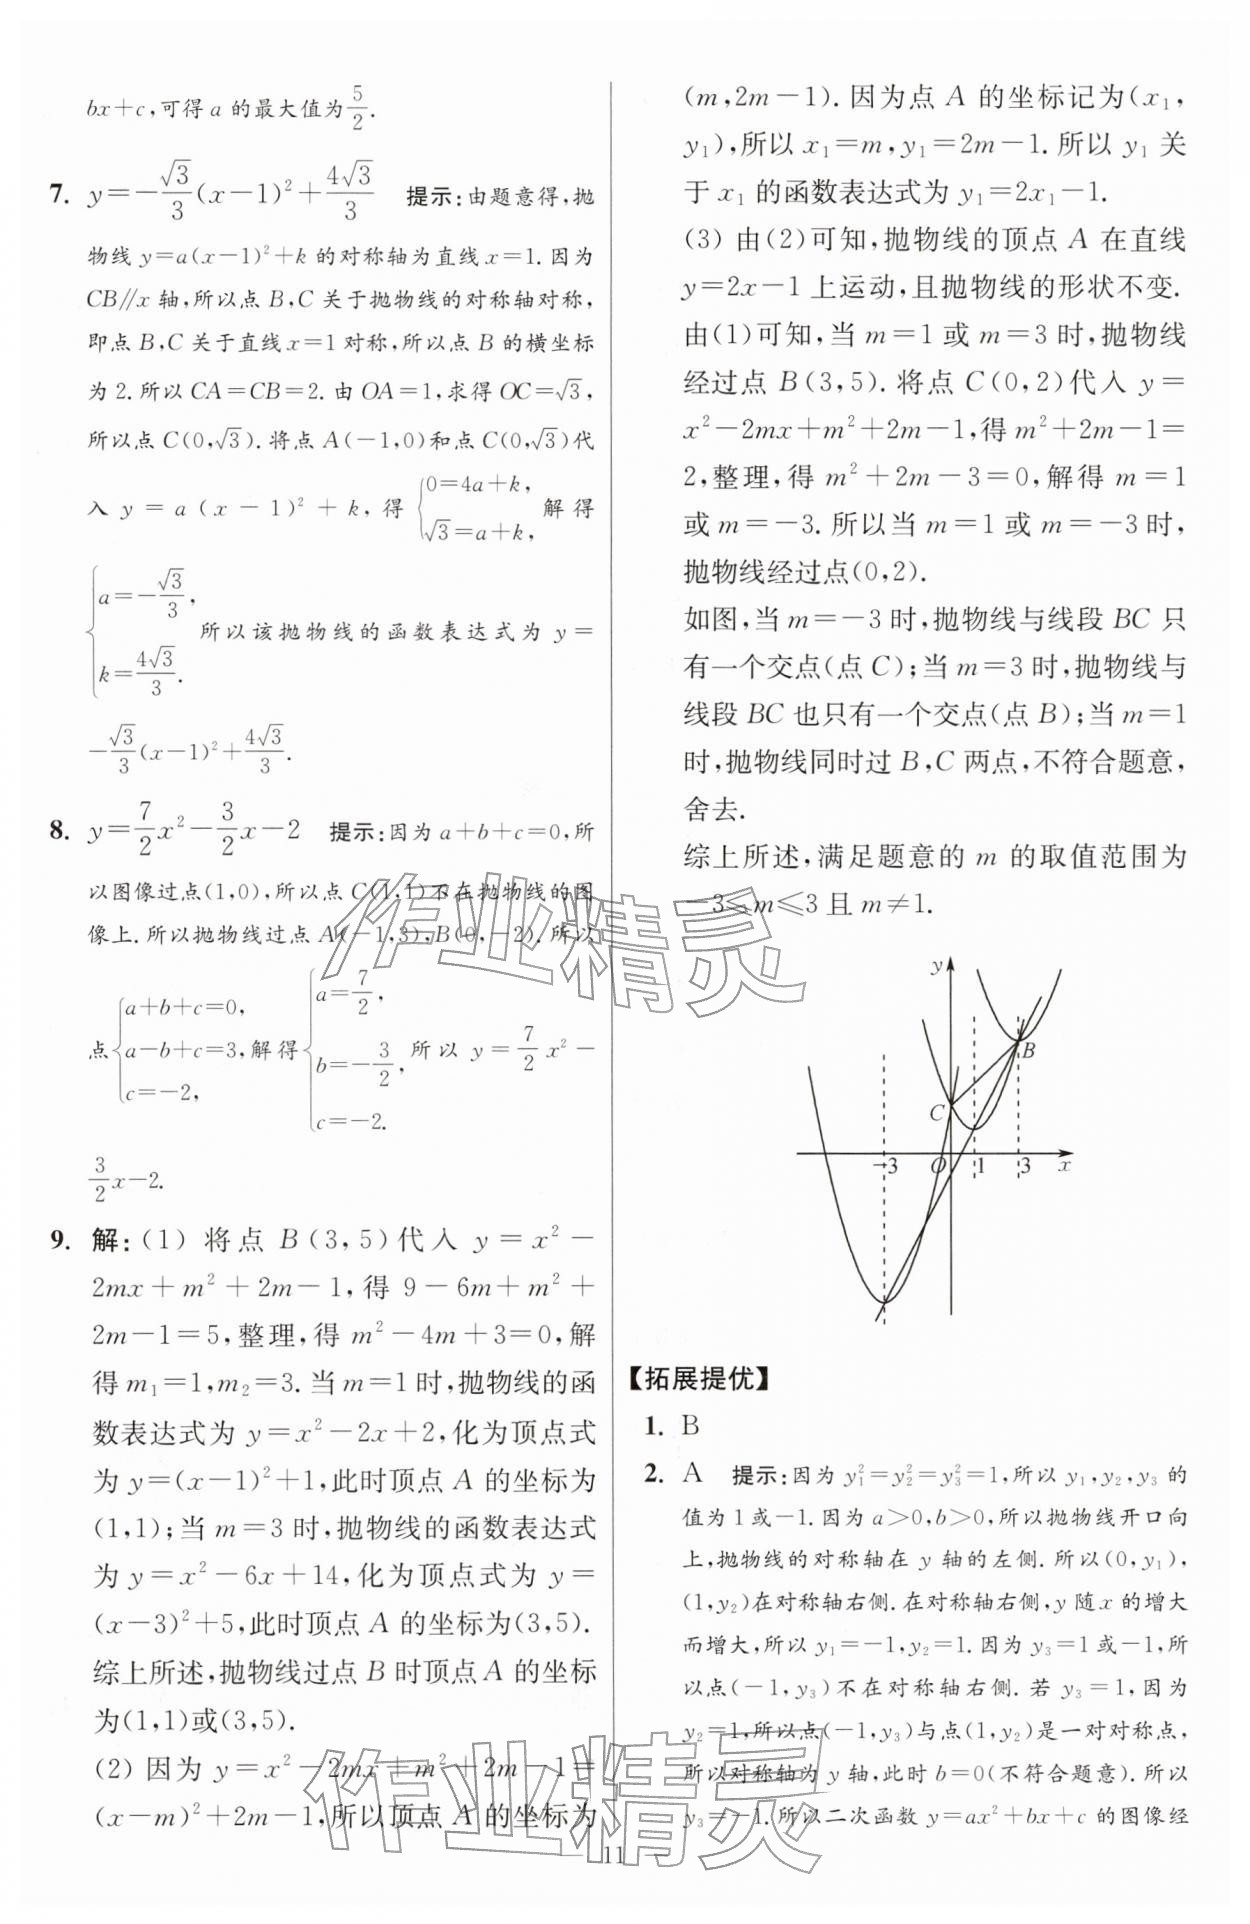 bx+c,可得 a 的最大值为5/2.
7. y=-√3/3(x-1)²+4√3/3 提示:由题意得,抛
物线 y=a(x-1)²+k 的对称轴为直线 x=1.因为
CB∥x 轴,所以点 B,C 关于抛物线的对称轴对称,
即点 B,C 关于直线 x=1 对称,所以点 B 的横坐标
为 2.所以 CA=CB=2.由 OA=1,求得 OC=√3,
所以点 C(0,√3).将点 A(-1,0)和点 C(0,√3)代
入 y=a(x-1)²+k,得 {0=4a+k, √3=a+k, 解得
{a=-√3/3, k=4√3/3. 所以该抛物线的函数表达式为 y=
-√3/3(x-1)²+4√3/3.
8. y=7/2x²-3/2x-2 提示:因为 a+b+c=0,所
以图像过点(1,0),所以点 C(1,1)不在抛物线的图
像上.所以抛物线过点 A(-1,3),B(0,-2).所以
点{a+b+c=0, a-b+c=3, c=-2, 解得{a=7/2, b=-3/2, c=-2. 所以 y=7/2x²-
3/2x-2.
9. 解:(1) 将点 B(3,5)代入 y=x²-
2mx+m²+2m-1,得 9-6m+m²+
2m-1=5,整理,得 m²-4m+3=0,解
得 m₁=1,m₂=3.当 m=1 时,抛物线的函
数表达式为 y=x²-2x+2,化为顶点式
为 y=(x-1)²+1,此时顶点 A 的坐标为
(1,1);当 m=3 时,抛物线的函数表达式
为 y=x²-6x+14,化为顶点式为 y=
(x-3)²+5,此时顶点 A 的坐标为(3,5).
综上所述,抛物线过点 B 时顶点 A 的坐标
为(1,1)或(3,5).
(2) 因为 y=x²-2mx+m²+2m-1=
(x-m)²+2m-1,所以顶点 A 的坐标为
(m,2m-1).因为点 A 的坐标记为(x₁,
y₁),所以 x₁=m,y₁=2m-1.所以 y₁ 关
于 x₁ 的函数表达式为 y₁=2x₁-1.
(3) 由(2)可知,抛物线的顶点 A 在直线
y=2x-1 上运动,且抛物线的形状不变.
由(1)可知,当 m=1 或 m=3 时,抛物线
经过点 B(3,5).将点 C(0,2)代入 y=
x²-2mx+m²+2m-1,得 m²+2m-1=
2,整理,得 m²+2m-3=0,解得 m=1
或 m=-3.所以当 m=1 或 m=-3 时,
抛物线经过点(0,2).
如图,当 m=-3 时,抛物线与线段 BC 只
有一个交点(点 C);当 m=3 时,抛物线与
线段 BC 也只有一个交点(点 B);当 m=1
时,抛物线同时过 B,C 两点,不符合题意,
舍去.
综上所述,满足题意的 m 的取值范围为
-3≤m≤3 且 m≠1.
y
B
C
-3 O 1 3 x
【拓展提优】
1. B
2. A 提示:因为 y₁²=y₂²=y₃²=1,所以 y₁,y₂,y₃ 的
值为 1 或-1.因为 a>0,b>0,所以抛物线开口向
上,抛物线的对称轴在 y 轴的左侧.所以(0,y₁),
(1,y₂)在对称轴右侧.在对称轴右侧,y 随 x 的增大
而增大,所以 y₁=-1,y₂=1.因为 y₃=1 或-1,所
以点(-1,y₃)不在对称轴右侧.若 y₃=1,因为
y₂=1,所以点(-1,y₃)与点(1,y₂)是一对对称点,
所以对称轴为 y 轴,此时 b=0(不符合题意).所以
y₃=-1.所以二次函数 y=ax²+bx+c 的图像经
11
作业精灵
作业精灵